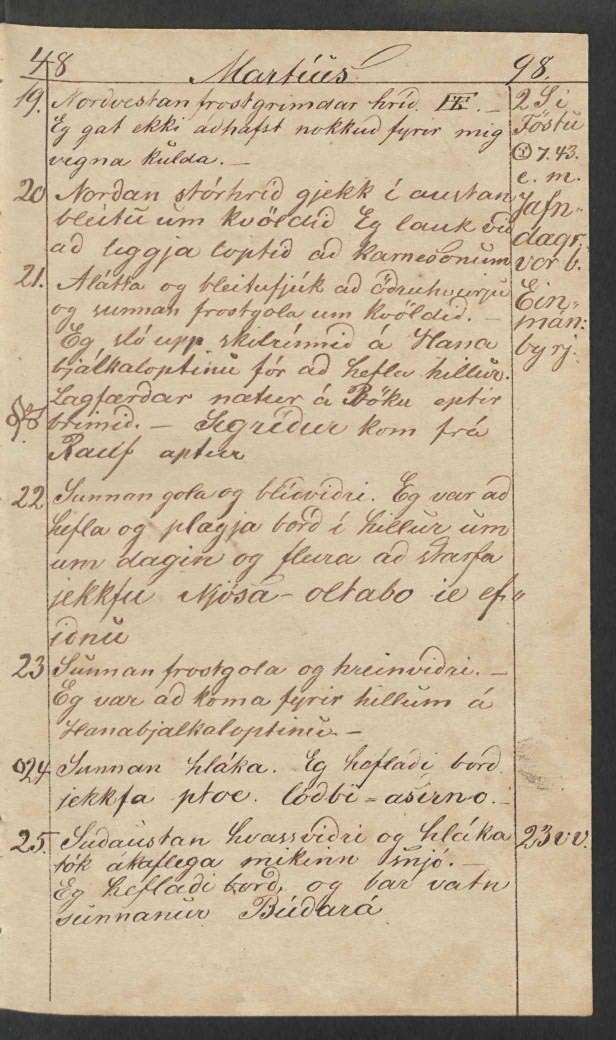 48 Martíus 98.
19. Nordvestan frostgrimdar hríd. — 2 S í
Eg gat ekki ádhafst nokkud fyrir mig Föstu
vegna kulda. — 7.43.
e. m.
20 Nordan stórhríd gjekk í austan Jafn-
bleitu um kvöldid Eg lauk vid dagr.
ad leggja loptid ad Karnesonum vor b.
21. Alátta og bleitufjúk ad ödruhverju Ein-
og sunnan frostgola um kvöldid. — mán:
Eg sló upp skilrúmid á Hana byrj.
bjálkaloptinu fór ad hefla hillur.
Lagfærdar nætur á Böku eptir
brimid. — Sigrídur kom frá
Rauf aptur
22 Sunnan gola og blídvidri. Eg var ad
hefla og plægja bord í hillur um
um dagin og fleira ad starfa
jekkfu Njósa - oltabo ie ef"
idnu
23 Sunnan frostgola og hreinvidri. —
Eg var ad koma fyrir hillum á
Hanabjalkaloptinu. —
24 Sunnan hláka. Eg hefladi bord
jekkfa ptoe. lödbi = asirno. —
25. Sudaustan hvassvidri og hláka 23 v v.
tók ákaflega mikinn snjó. —
Eg hefladi bord, og bar vatn
sunnanur Búdará